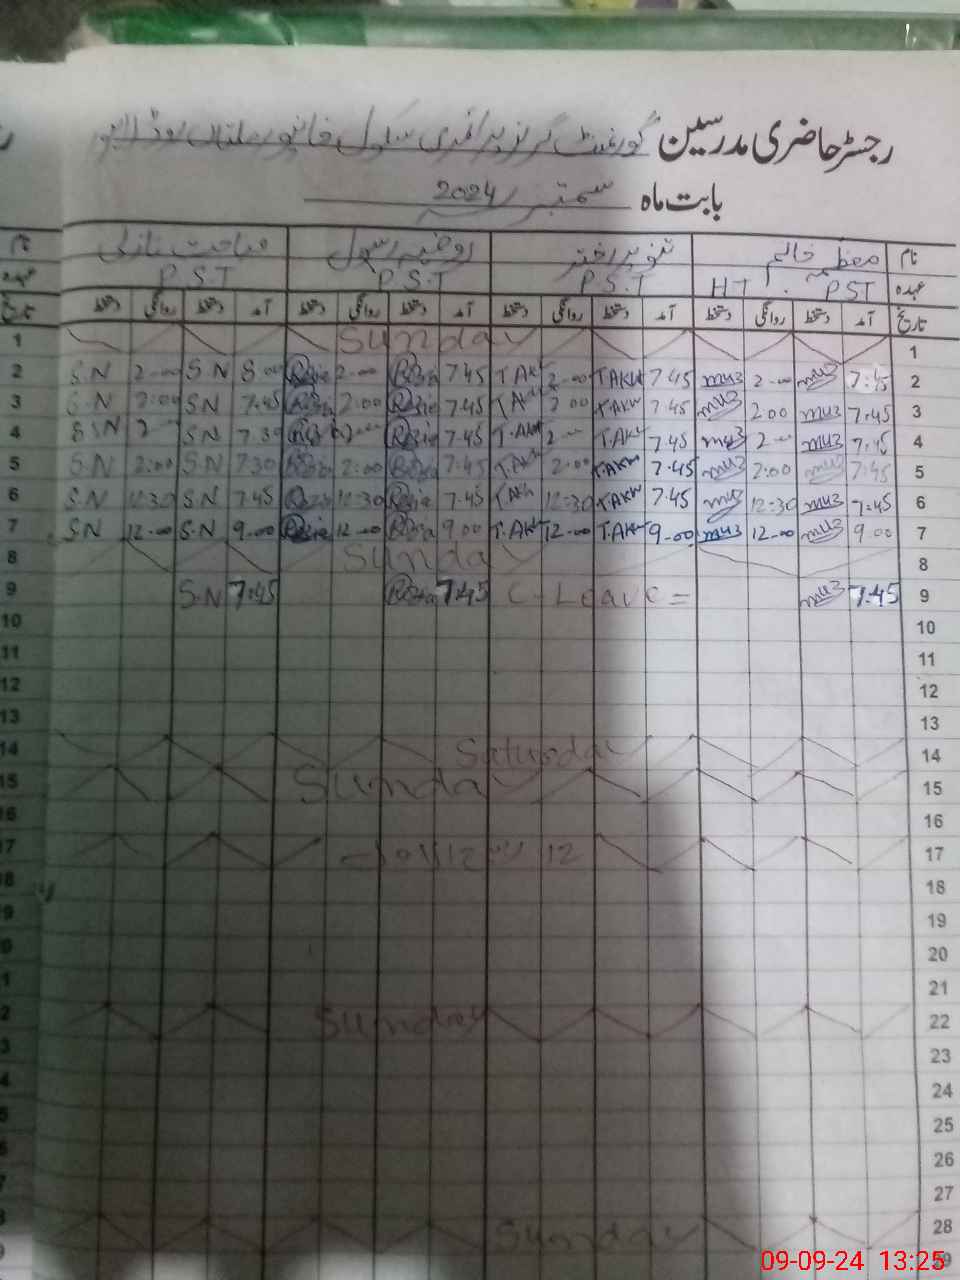 رجسٹر حاضری مدرسین گورنمنٹ گرلز پرائمری سکول خانپور
بابت ماہ ستمبر 2024
نام معظمہ خانم تنویر اختر رضیہ رسول صباحت نازلی نام
عہدہ PST HT P.S.T P.S.T P.S.T عہدہ
تاریخ آمد دستخط روانگی دستخط آمد دستخط روانگی دستخط آمد دستخط روانگی دستخط آمد دستخط روانگی دستخط تاریخ
1 Sunday 1
2 S.N 2-00 S.N 8.00 Razia 2-00 Razia 7.45 T.AKh 2-00 T.AKh 7.45 muz 2-00 muz 7:45 2
3 S.N 2:00 S.N 7.45 Razia 2:00 Razia 7.45 T.AKh 2 00 T.AKh 7.45 muz 2 00 muz 7:45 3
4 S.N 2- S.N 7.30 Razia 2-00 Razia 7.45 T.AKh 2- T.AKh 7.45 muz 2- muz 7:45 4
5 S.N 2:00 S.N 7:30 Razia 2:00 Razia 7:45 T.AKh 2:00 T.AKh 7.45 muz 2:00 muz 7:45 5
6 S.N 12:30 S.N 7.45 Razia 12:30 Razia 7.45 T.AKh 12:30 T.AKh 7.45 muz 12:30 muz 7:45 6
7 S.N 12-00 S.N 9-00 Razia 12-00 Razia 9.00 T.AKh 12-00 T.AKh 9-00 muz 12-00 muz 9.00 7
8 Sunda 8
9 S.N 7:45 Razia 7:45 C-Leave = muz 7.45 9
10 10
11 11
12 12
13 13
14 Saturday 14
15 Sunday 15
16 16
17 12 ربیع الاول 17
18 18
19 19
20 20
21 21
22 Sunday 22
23 23
24 24
25 25
26 26
27 27
28 Sunday 28
29 29
09-09-24 13:25